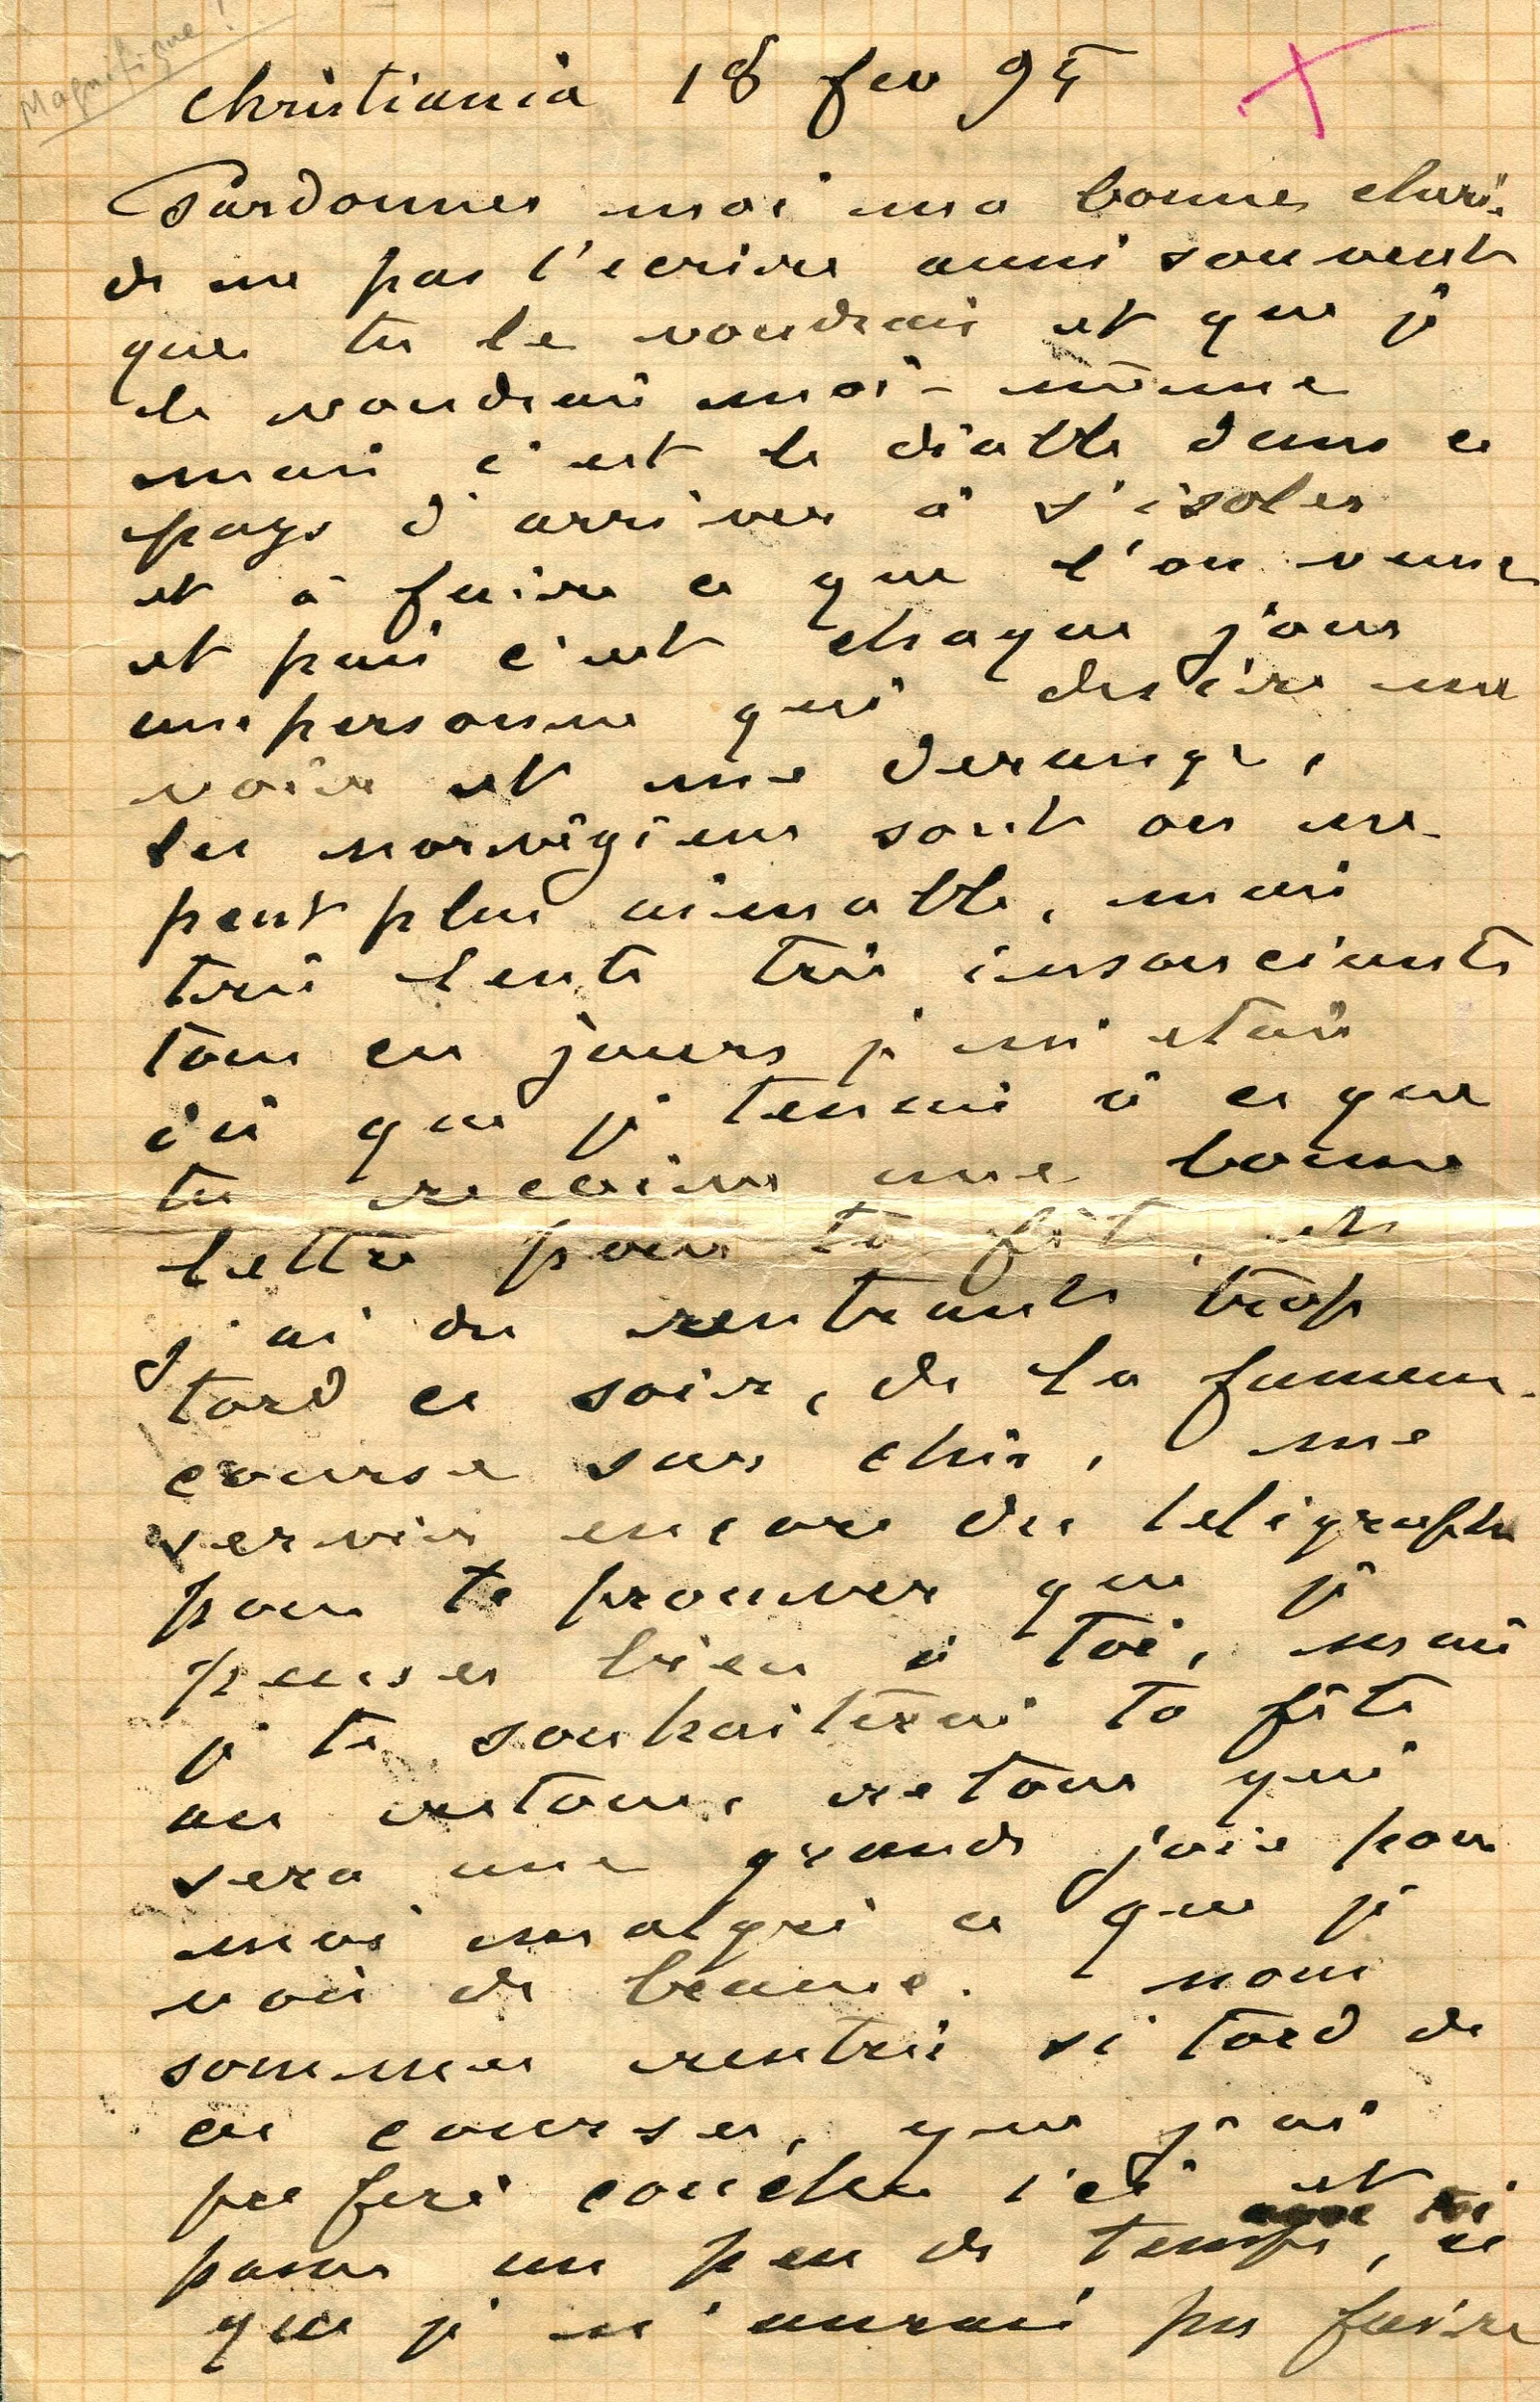 Magnifique!
Christiania 18 fev 95
Pardonnes moi ma bonne cheri
de ne pas t'ecrire aussi souvent
que tu le voudrais et que je
le voudrai moi-même
mais c'est le diable dans ce
pays d'arriver à s'isoler
et à faire ce que l'on veut
et puis c'est chaque jour
une personne qui desire me
voir et me derange,
les norvégiens sont on ne
peut plus aimable, mais
très lents très insouciants
tous ces jours je m'etais
dis que je tenais à ce que
tu recoive une bonne
lettre pour ta fête, et
j'ai du rentrant trop
tard ce soir, de la fameuse
course sur skis, me
servir encore du telegraphe
pour te prouver que je
penses bien à toi, mais
je te souhaiterai ta fête
au retour, retour qui
sera une grande joie pour
moi malgré ce que je
vois de beau. nous
sommes rentrés si tard de
ces courses, que j'ai
preferé coucher ici et
passer un peu de temps avec toi, ce
que je n'aurais pu faire